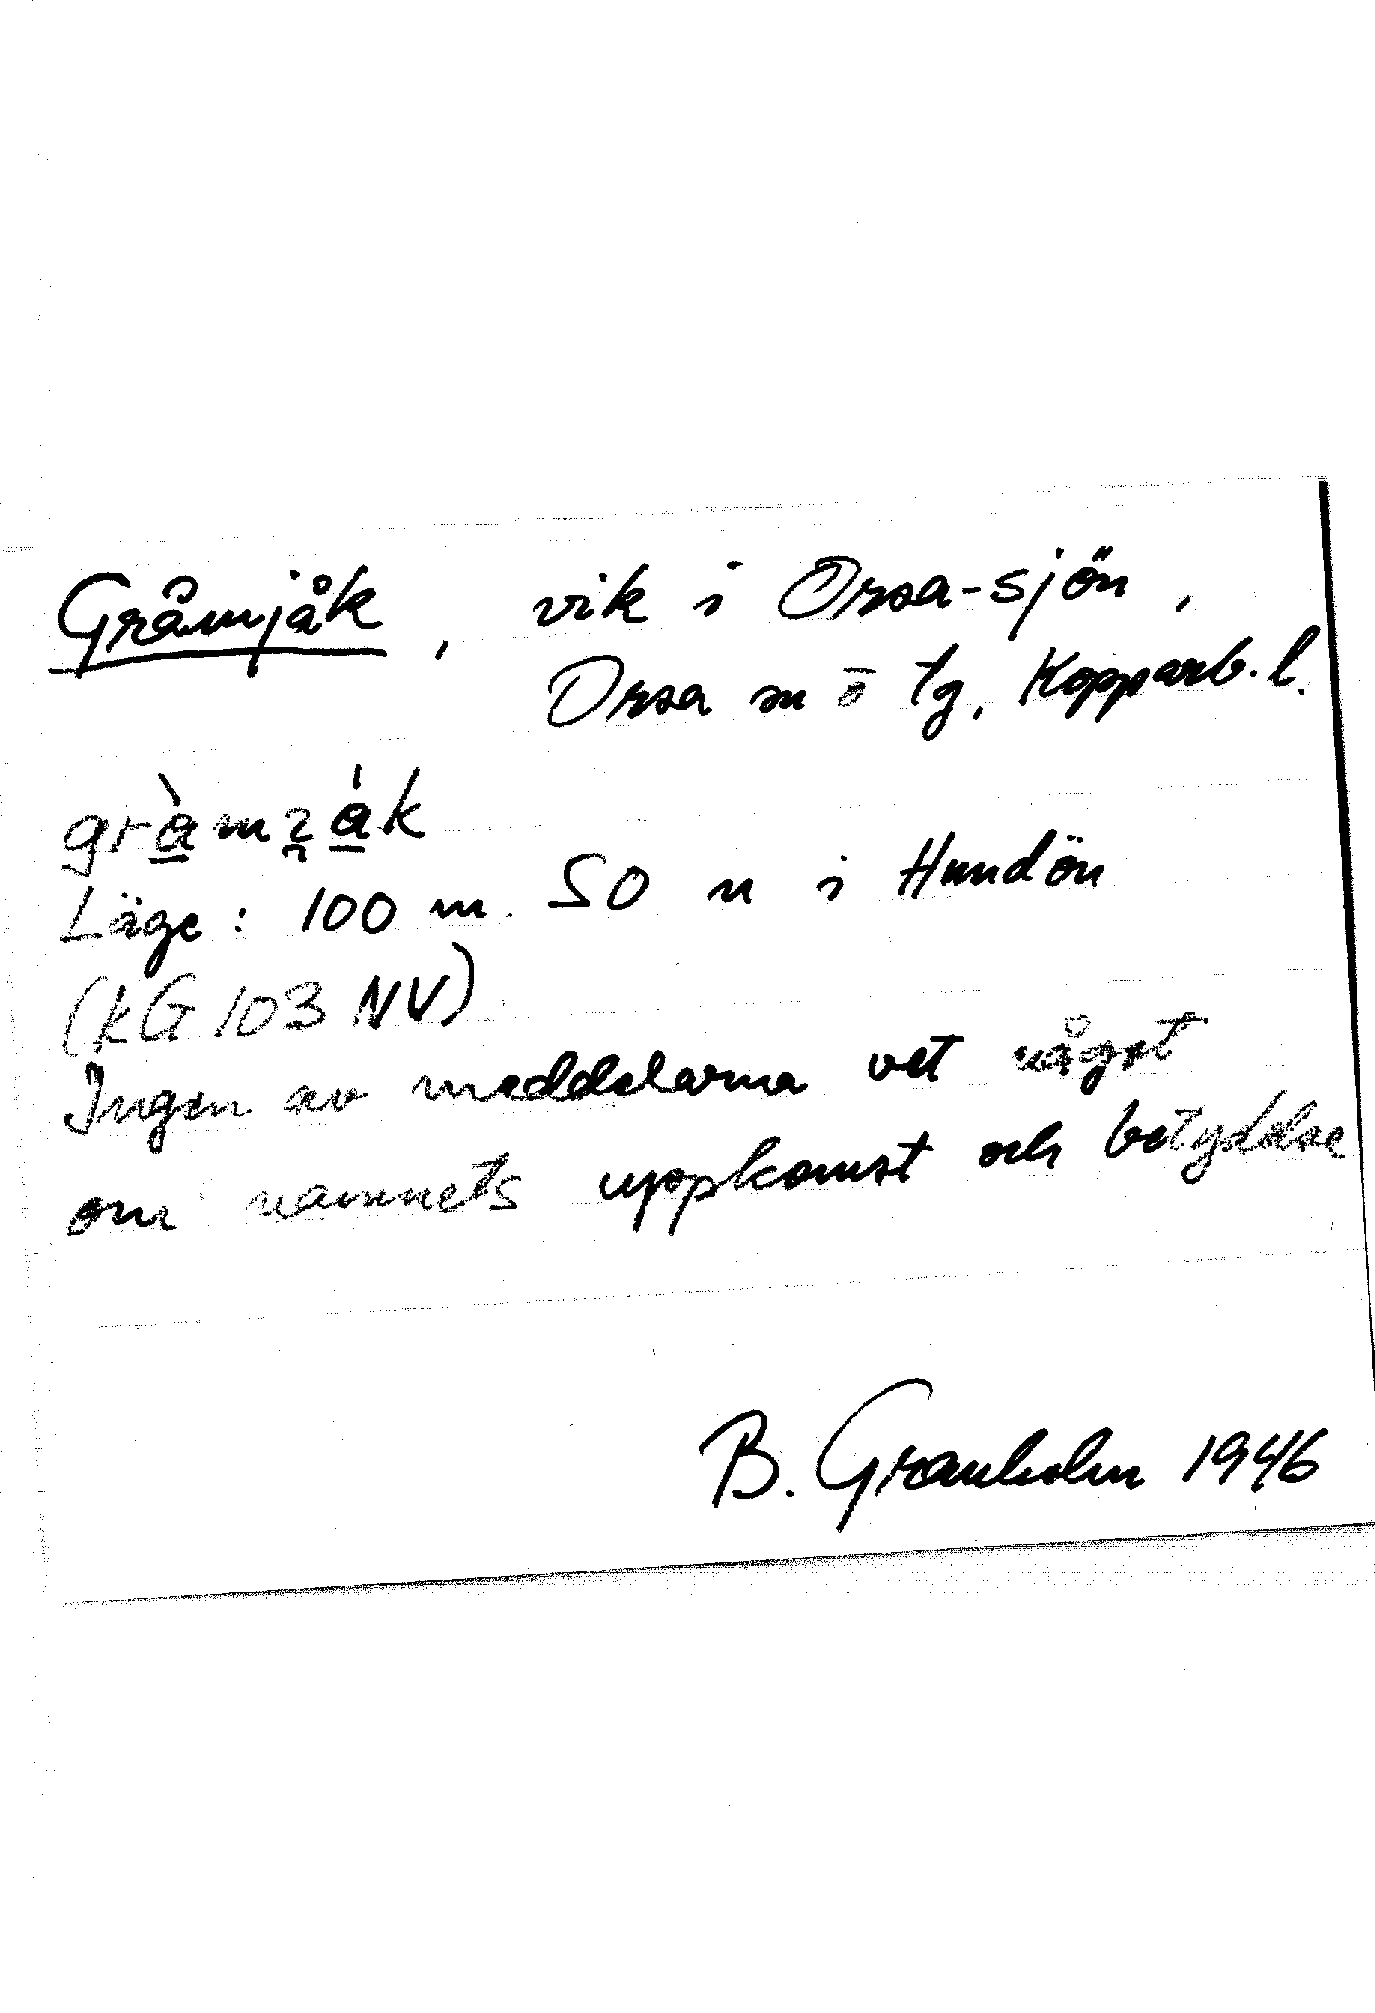 Gråmjåk, vik i Orsa-sjön,
Orsa sn ō tg, Kopparb. l.
Läge: 100 m SO n i Hundön
(kG 103 NV)
Ingen av meddelarna vet något
om namnets uppkomst och betydelse
B. Granholm 1946